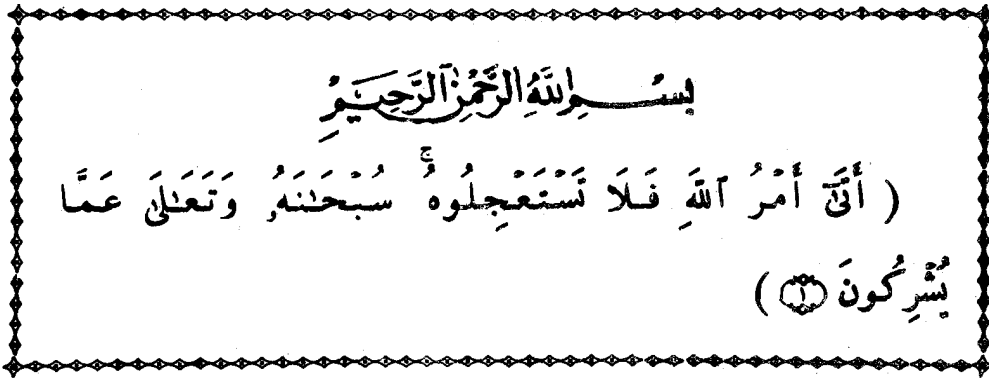 بِسْمِ اللَّهِ الرَّحْمَٰنِ الرَّحِيمِ
( أَتَىٰٓ أَمْرُ ٱللَّهِ فَلَا تَسْتَعْجِلُوهُ ۚ سُبْحَٰنَهُۥ وَتَعَٰلَىٰ عَمَّا
يُشْرِكُونَ ١ )